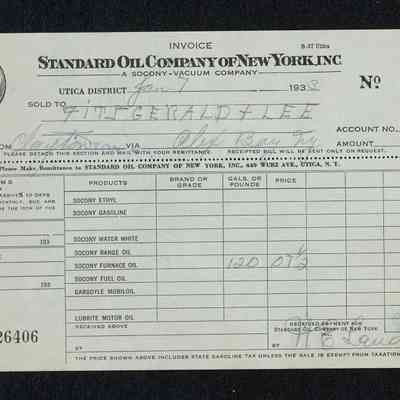 INVOICE
S-37 Utica
STANDARD OIL COMPANY OF NEW YORK, INC.
A SOCONY-VACUUM COMPANY
UTICA DISTRICT Jan 7 1933 No
SOLD TO FITZGERALD & LEE
ACCOUNT NO.
OM VIA Alex Bay Ny AMOUNT
PLEASE DETACH THIS SECTION AND MAIL WITH YOUR REMITTANCE. RECEIPTED BILL WILL BE SENT ONLY ON REQUEST.
Please Make Remittance to STANDARD OIL COMPANY OF NEW YORK, INC., AVE., UTICA, N. Y.
MS
10 DAYS
MONTHLY, BUT ARE
THE 10TH OF THE
193
193
26406
PRODUCTS BRAND OR GRADE GALS. OR POUNDS PRICE
SOCONY ETHYL
SOCONY GASOLINE
SOCONY WATER WHITE
SOCONY RANGE OIL
SOCONY FURNACE OIL 120 07½
SOCONY FUEL OIL
GARGOYLE MOBILOIL
LUBRITE MOTOR OIL
RECEIVED ABOVE
RECEIVED PAYMENT FOR
STANDARD OIL COMPANY OF NEW YORK
BY BY
THE PRICE SHOWN ABOVE INCLUDES STATE GASOLINE TAX UNLESS THE SALE IS EXEMPT FROM TAXATION